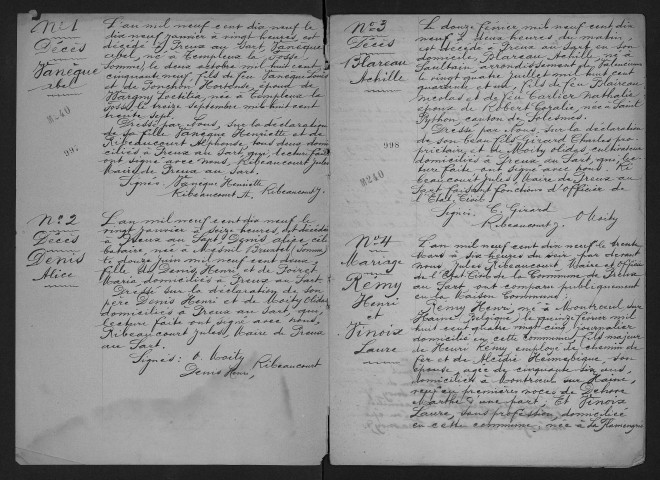 No 1
Décès
Vanèque
abel
M-40
997
L'an mil neuf cent dix neuf le
dix neuf janvier à vingt heures, est
décédé à Preux au Sart, Vanèque
abel, né à Templeux la Fosse
Somme, le deux octobre mil huit cent
cinquante neuf, fils de feu Vanèque Louis
et de Hortense, époux de
Laetitia, née à Templeux la
Fosse le treize septembre mil huit cent
trente sept.
Dressé par Nous, sur la déclaration
de sa fille Vanèque Henriette et
Ribeaucourt Alphonse, tous deux domi-
ciliés à Preux au Sart qui, lecture faite
ont signé avec nous, Ribeaucourt Jules
Maire de Preux au Sart.
Signés: Vanèque Henriette
Ribeaucourt A, Ribeaucourt J.
No 2
Décès
Denis
Alice
L'an mil neuf cent dix neuf le
vingt janvier à seize heures, est décédée
à Preux au Sart, Denis alice, céli-
bataire, née à Mesnil Bruntel (Somme)
le douze juin mil neuf cent deux,
fille de Denis Henri et de
Maria domiciliés à Preux au Sart.
Dressé sur la déclaration de son
père Denis Henri et de Moity Elidas
domiciliés à Preux au Sart, qui,
lecture faite ont signé avec nous,
Ribeaucourt Jules, Maire de Preux
au Sart.
Signés: O. Moity
Denis Henri, Ribeaucourt
No 3
Décès
Blareau
Achille
998
M240
Le douze février mil neuf cent dix
neuf à deux heures du matin,
est décédé à Preux au Sart en son
domicile, Blareau Achille, né à
Saultain, arrondissement de Valenciennes
le vingt quatre juillet mil huit cent
quarante et un, fils de feu Blareau
Nicolas et de feu Cartier Nathalie
époux de Libert Coralie, née à Saint
Python, canton de Solesmes.
Dressé par Nous, sur la déclaration
de son beau fils Gérard Charles pro-
priétaire, et de Moity Elidas, cultivateur
domiciliés à Preux au Sart, qui, lec-
ture faite ont signé avec nous, Ri-
beaucourt Jules Maire de Preux au
Sart faisant fonctions d'Officier de
l'Etat Civil.
Signés: C. Gérard
Ribeaucourt J. O Moity
No 4
Mariage
Remy
Henri
et
Vinoix
Laure
L'an mil neuf cent dix neuf le trente
Mars à six heures du soir, par devant
nous Jules Ribeaucourt Maire et Officier
de l'Etat Civil de la Commune de Preux
au Sart, ont comparu publiquement
en la Maison Commune:
Remy Henri, né à Montreuil sur
Haine, Belgique, le quinze février mil
huit cent quatre vingt cinq, journalier
domicilié en cette commune, fils majeur
de Henri Remy employé de chemin de
fer et de son
épouse, agée de cinquante six ans,
domiciliés à Montreuil sur Haine,
veuf en premières noces de Dehove
Marthe d'une part; Et Vinoix
Laure, sans profession, domiciliée
en cette commune, née à La Flamengrie